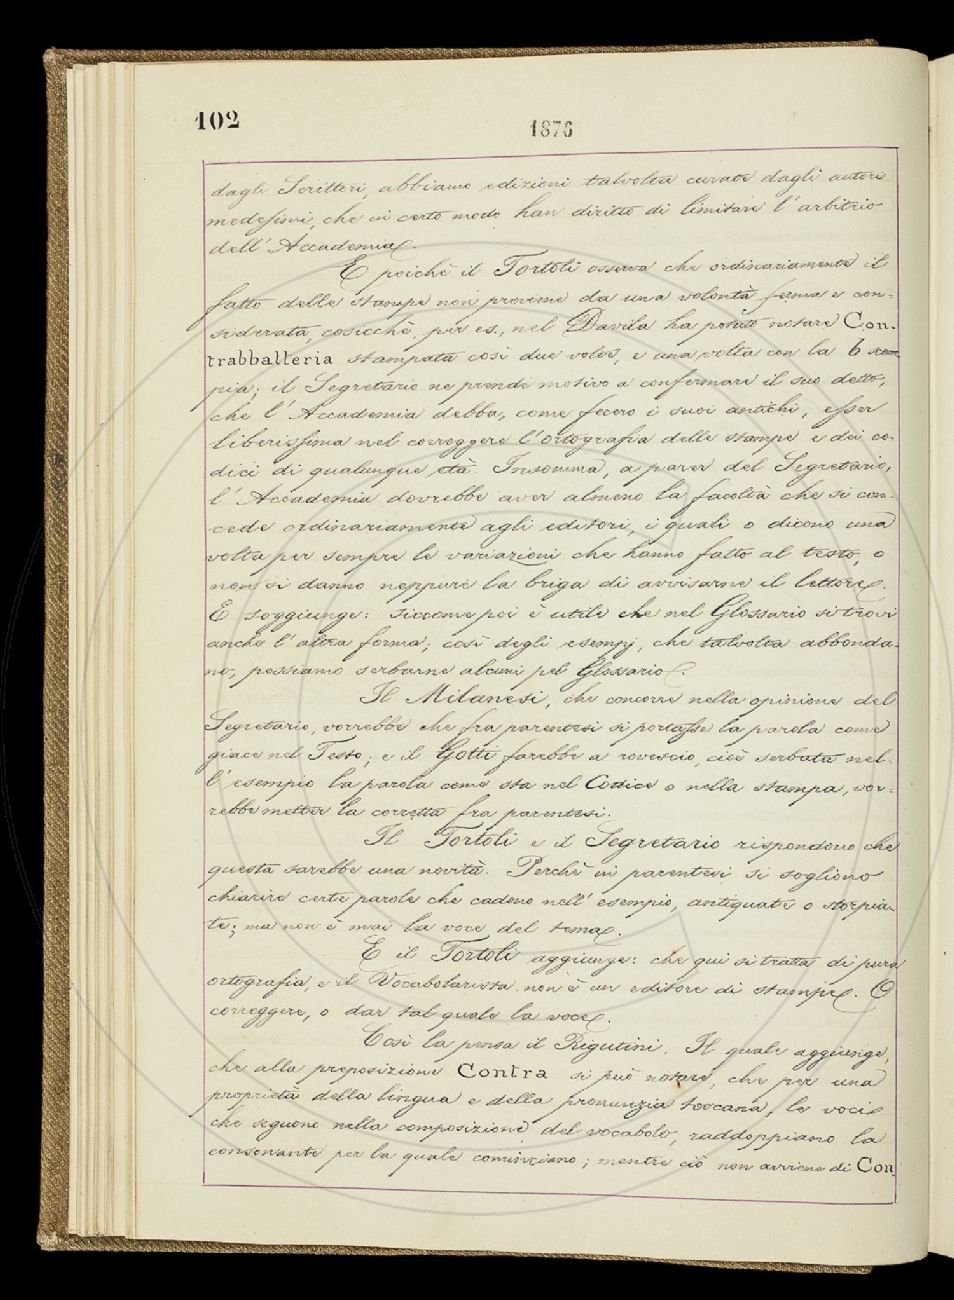 102
1876
dagli Scrittori, abbiamo edizioni talvolta curate dagli autori
medesimi, che in certo modo han diritto di limitare l'arbitrio
dell'Accademia.
E poichè il Tortoli osserva che ordinariamente il
fatto delle stampe non proviene da una volontà ferma e con-
siderata, cosicchè, per es., nel Davila ha potuto notare Con-
trabballeria stampata così due volte, e una volta con la b scem-
pia; il Segretario ne prende motivo a confermare il suo detto,
che l'Accademia debba, come fecero i suoi antichi, esser
liberissima nel correggere l'ortografia delle stampe e dei co-
dici di qualunque età. Insomma, a parer del Segretario,
l'Accademia dovrebbe aver almeno la facoltà che si con-
cede ordinariamente agli editori, i quali o dicono una
volta per sempre le variazioni che hanno fatto al testo, o
non si danno neppure la briga di avvisarne il lettore.
E soggiunge: siccome poi è utile che nel Glossario si trovi
anche l'altra forma; così degli esempj, che talvolta abbonda-
no, possiamo serbarne alcuni pel Glossario.
Il Milanesi, che concorre nella opinione del
Segretario, vorrebbe che fra parentesi si portasse la parola come
giace nel Testo; e il Gotti farebbe a rovescio, cioè serbata nel-
l'esempio la parola come sta nel Codice o nella stampa, vor-
rebbe metter la corretta fra parentesi.
Il Tortoli e il Segretario rispondono che
questa sarebbe una novità. Perchè in parentesi si sogliono
chiarire certe parole che cadono nell'esempio, antiquate o storpia-
te; ma non è mai la voce del tema.
E il Tortoli aggiunge: che qui si tratta di pura
ortografia, e il Vocabolarista non è un editore di stampe. O
correggere, o dar tal quale la voce.
Così la pensa il Rigutini. Il quale aggiunge,
che alla preposizione Contra si può notare, che per una
proprietà della lingua e della pronunzia toscana, le voci
che seguono nella composizione del vocabolo, raddoppiano la
consonante per la quale cominciano; mentre ciò non avviene di Con-